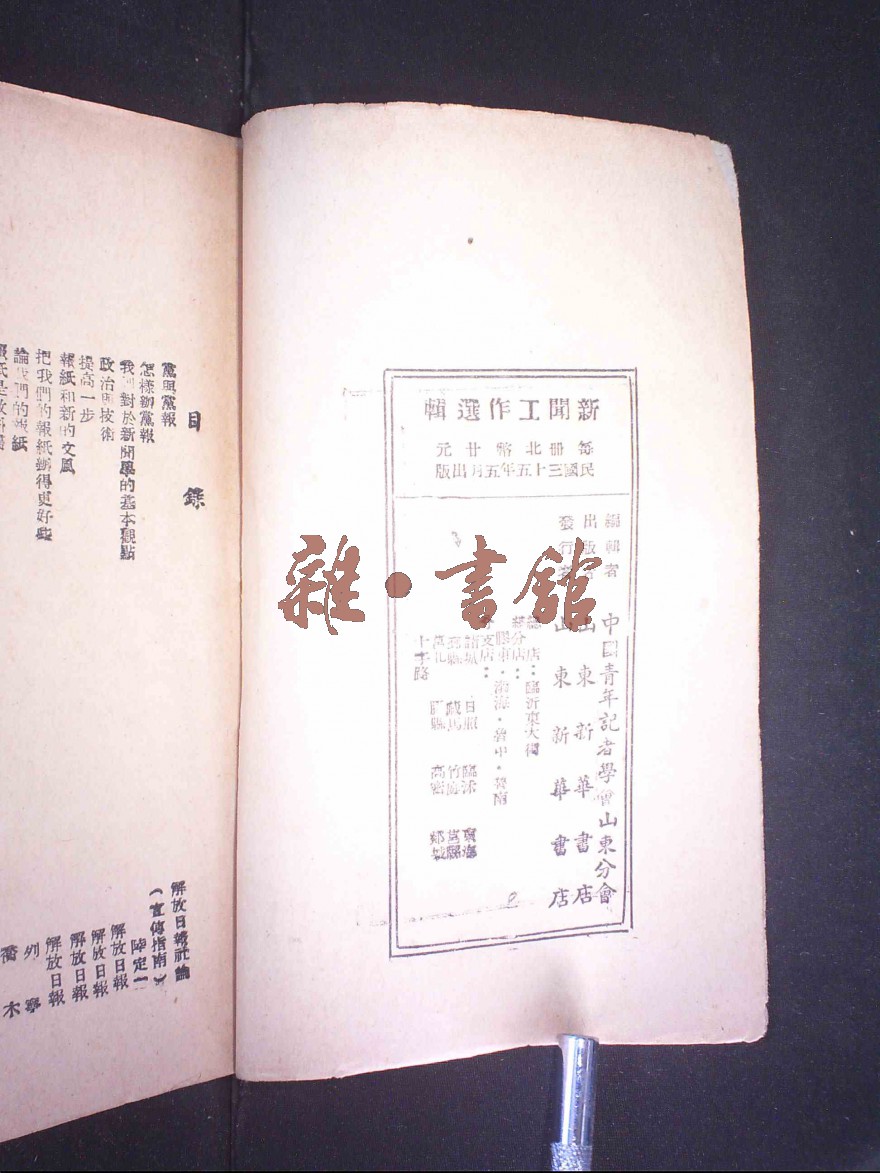 新聞工作選輯
每冊北幣廿元
民國三十五年五月出版
編輯者 中國青年記者學會山東分會
出版者 山東新華書店
發行者 山東新華書店
總店：臨沂東大街
膠東·渤海·魯中·魯南
支店：
諸城 日照 臨沭
藏馬 竹庭 莒縣
高密 郯城
十字路
雜·書館
目錄
黨與黨報
怎樣辦黨報
我們對於新聞學的基本觀點
政治與技術
提高一步
報紙和新的文風
把我們的報紙辦得更好些
論我們的報紙
報紙是教科書
解放日報社論
（宣傳指南）
陸定一
解放日報
解放日報
解放日報
解放日報
列寧
喬木